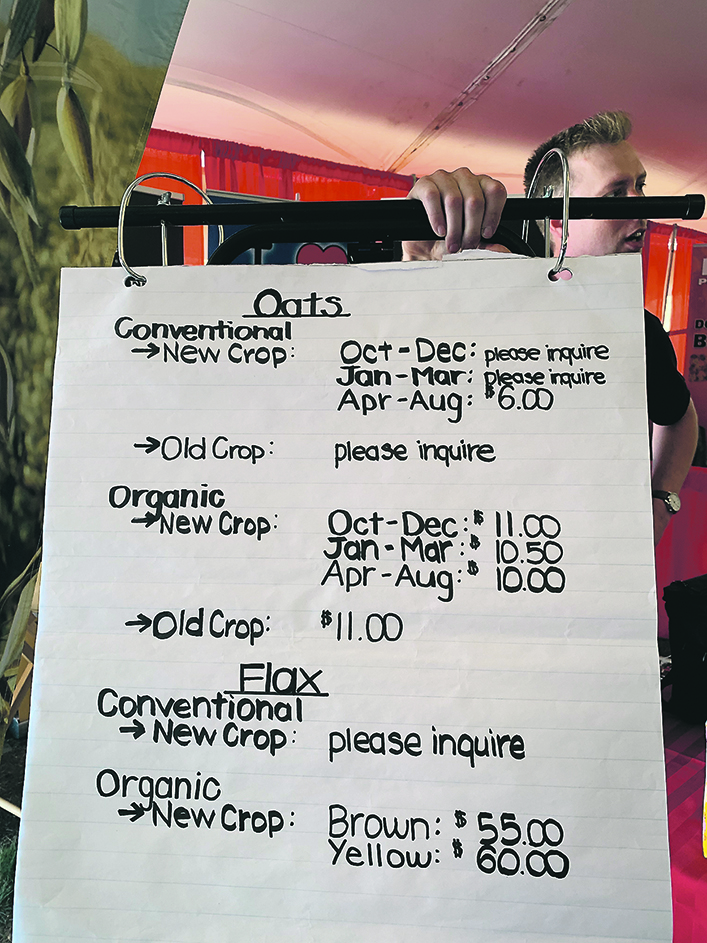 Oats
Conventional
→New Crop: Oct-Dec: please inquire
Jan-Mar: please inquire
Apr-Aug: $6.00
→Old Crop: please inquire
Organic
→New Crop: Oct-Dec: $ 11.00
Jan-Mar: $ 10.50
Apr-Aug: $ 10.00
→Old Crop: $11.00
Flax
Conventional
→New Crop: please inquire
Organic
→New Crop: Brown: $ 55.00
Yellow: $ 60.00